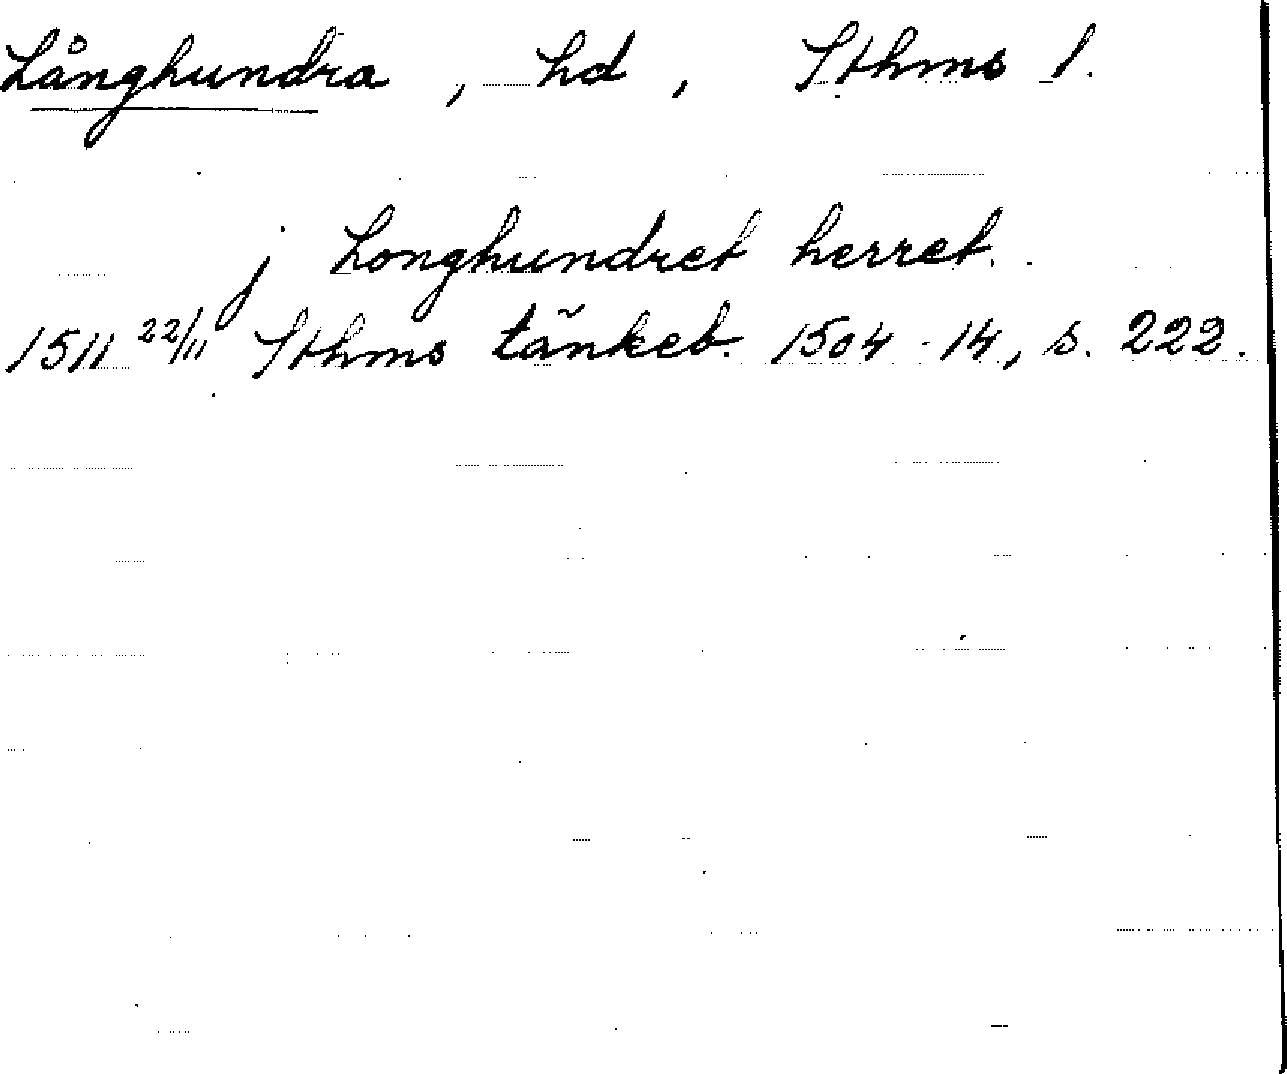 Långhundra, hd, Sthms l.
j Longhundret herret.
1511 22/11 Sthms tänkeb. 1504-14, s. 222.